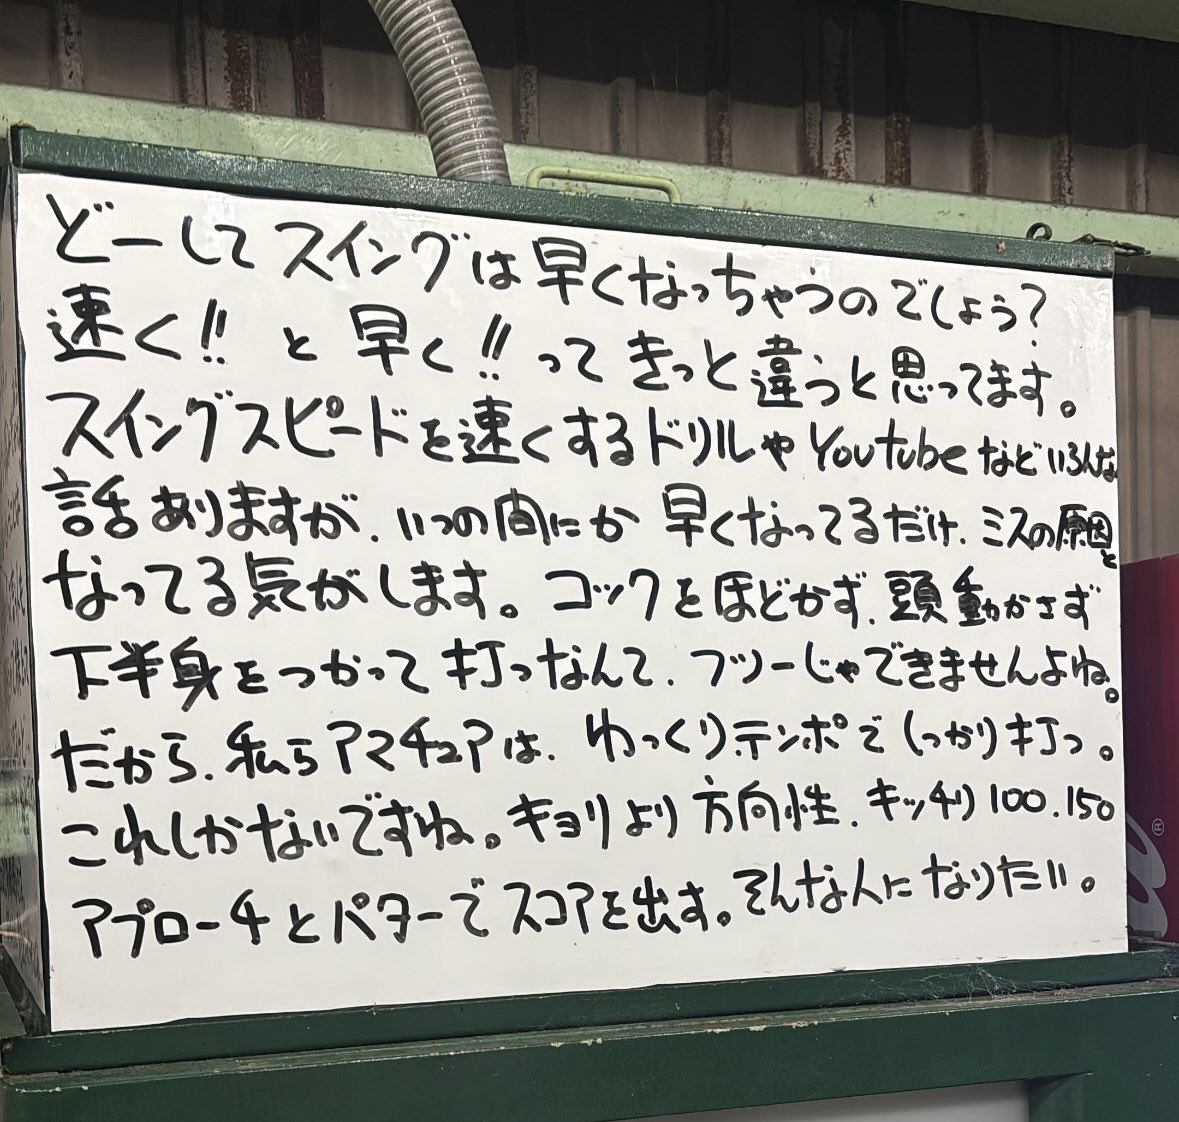 どーしてスイングは早くなっちゃうのでしょう?
速く!! と 早く!! ってきっと違うと思ってます。
スイングスピードを速くするドリルやYoutubeなどいろんな
話ありますが、いつの間にか 早くなってるだけ、ミスの原因と
なってる気がします。コックをほどかず、頭動かさず
下半身をつかって打つなんて、フツーじゃできませんよね。
だから、私らアマチュアは、ゆっくりテンポでしっかり打つ。
これしかないですね。キョリより方向性、キッチリ100、150
アプローチとパターでスコアを出す。そんな人になりたい。
®